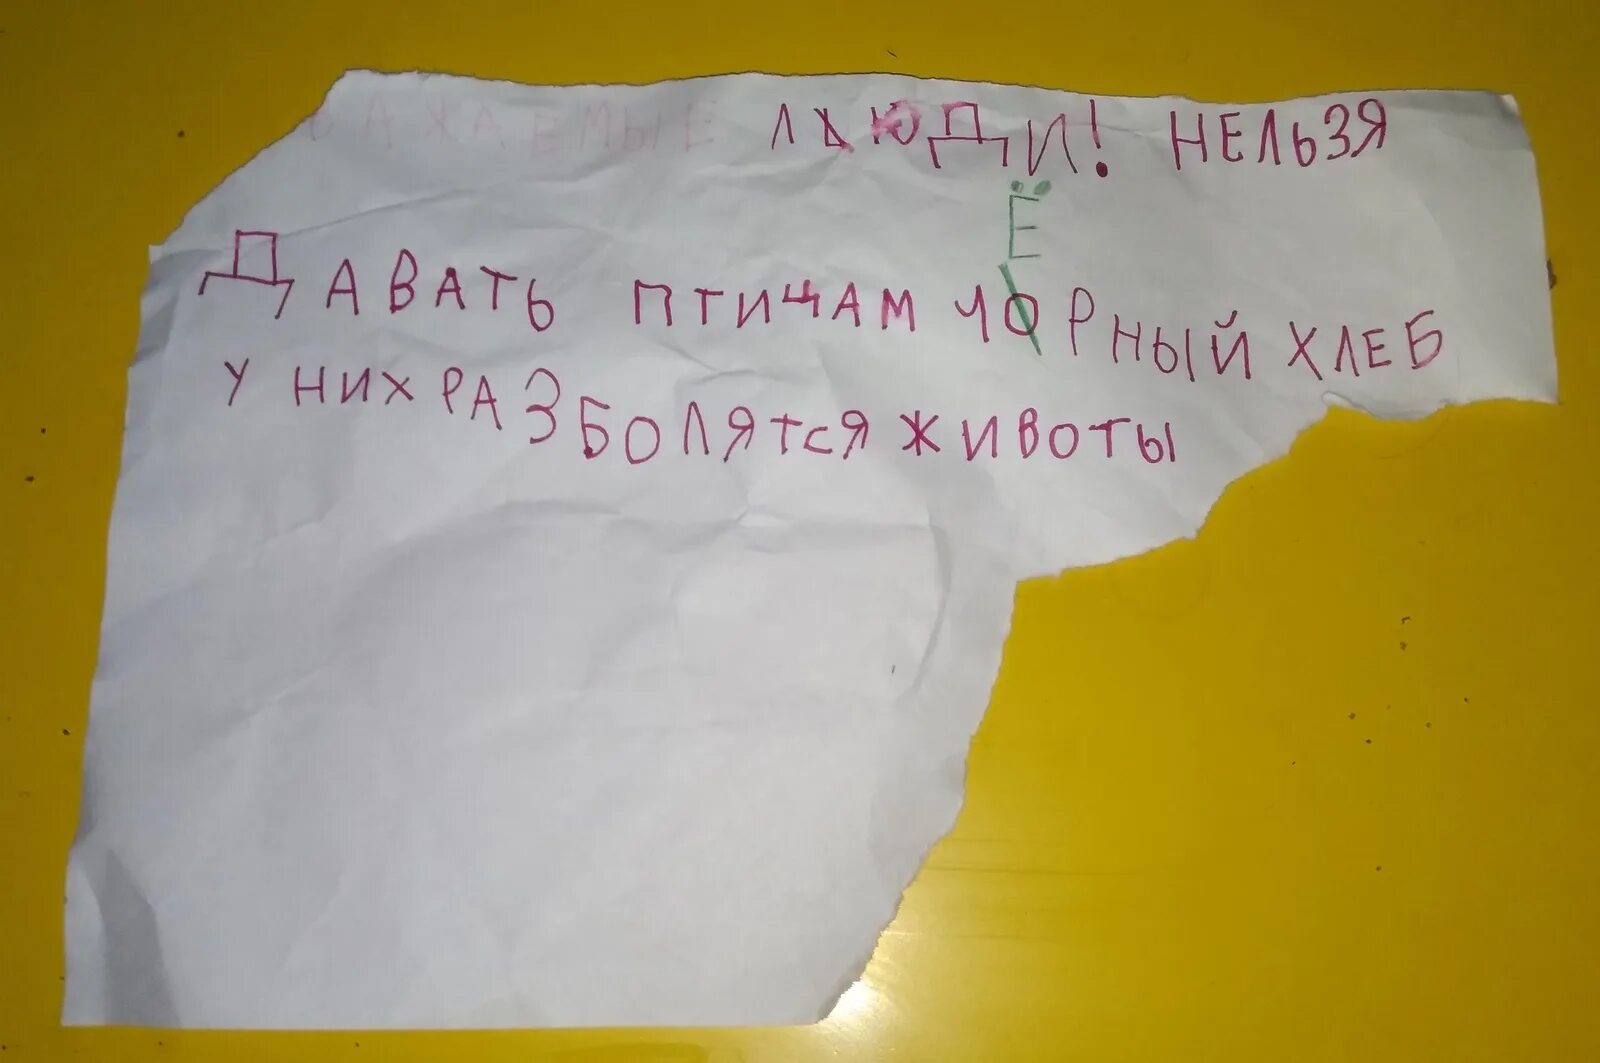 УВАЖАЕМЫЕ ЛЮДИ! НЕЛЬЗЯ
ДАВАТЬ ПТИЦАМ ЧЁРНЫЙ ХЛЕБ
У НИХ РАЗБОЛЯТСЯ ЖИВОТЫ